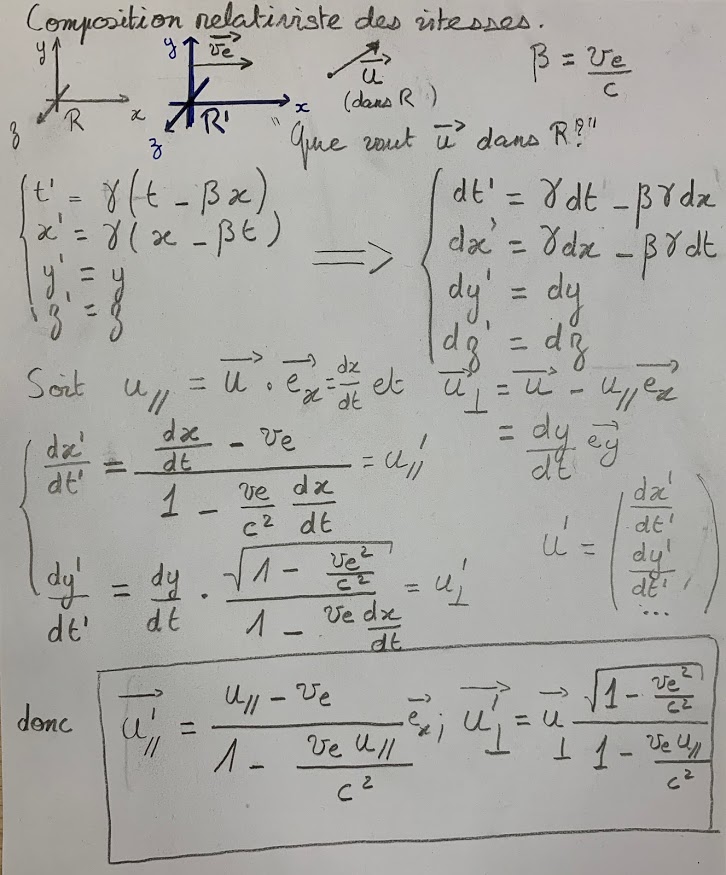 Composition relativiste des vitesses.
y x z R
y x z R' \vec{v_e}
\vec{u} (dans R)
β = v_e/c
"Que vaut \vec{u} dans R'?"
{ t' = γ(t - βx)
x' = γ(x - βt)
y' = y
z' = z
⟹
{ dt' = γdt - βγdx
dx' = γdx - βγdt
dy' = dy
dz' = dz
Soit u_{//} = \vec{u} . \vec{e_x} = dx/dt et \vec{u}_⊥ = \vec{u} - u_{//} \vec{e_x}
= dy/dt \vec{e_y}
{ dx'/dt' = (dx/dt - v_e) / (1 - v_e/c² dx/dt) = u_{//}'
dy'/dt' = dy/dt . √(1 - v_e²/c²) / (1 - v_e dx/dt) = u_⊥'
u' = (dx'/dt' dy'/dt' ...)
donc \vec{u_{//}'} = (u_{//} - v_e) / (1 - v_e u_{//}/c²) \vec{e_x} ; \vec{u_⊥'} = \vec{u}_⊥ √(1 - v_e²/c²) / (1 - v_e u_{//}/c²)